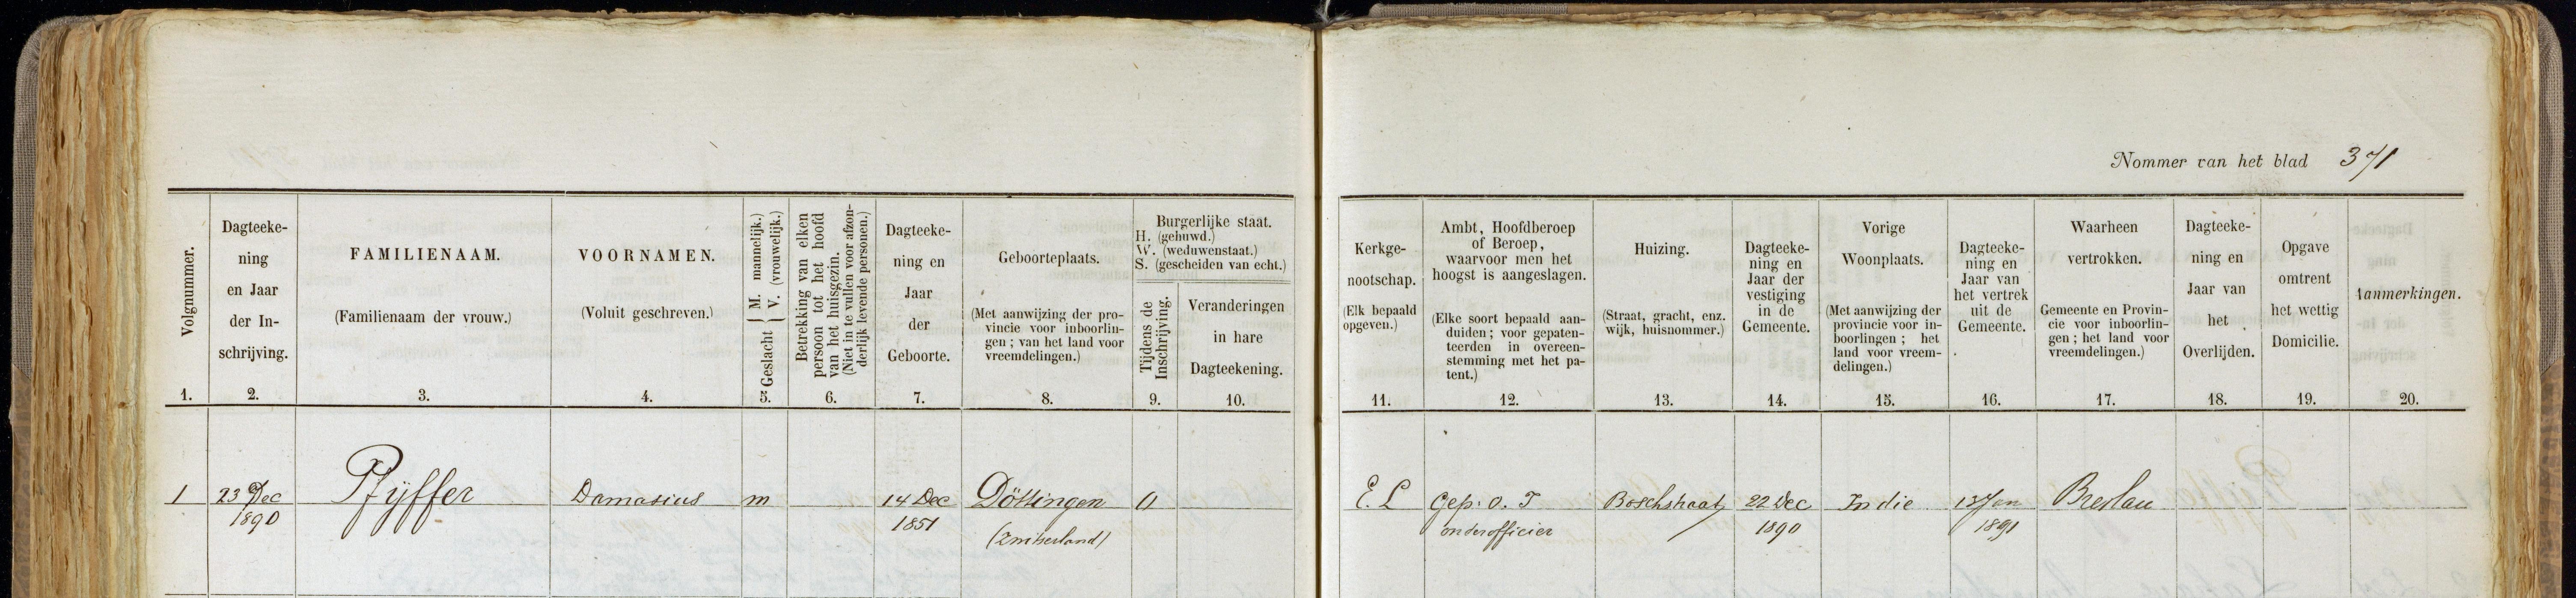 Nommer van het blad 371
Volgnummer.
1.
Dagteeke-
ning
en Jaar
der In-
schrijving.
2.
FAMILIENAAM.
(Familienaam der vrouw.)
3.
VOORNAMEN.
(Voluit geschreven.)
4.
Geslacht { M. mannelijk.)
V. (vrouwelijk.)
5.
Betrekking van elken
persoon tot het hoofd
van het huisgezin.
(Niet in te vullen voor afzon-
derlijk levende personen.)
6.
Dagteeke-
ning en
Jaar
der
Geboorte.
7.
Geboorteplaats.
(Met aanwijzing der pro-
vincie voor inboorlin-
gen; van het land voor
vreemdelingen.)
8.
Burgerlijke staat.
H. (gehuwd.)
W. (weduwenstaat.)
S. (gescheiden van echt.)
Tijdens de
Inschrijving.
9.
Veranderingen
in hare
Dagteekening.
10.
Kerkge-
nootschap.
(Elk bepaald
opgeven.)
11.
Ambt, Hoofdberoep
of Beroep,
waarvoor men het
hoogst is aangeslagen.
(Elke soort bepaald aan-
duiden; voor gepaten-
teerden in overeen-
stemming met het pa-
tent.)
12.
Huizing.
(Straat, gracht, enz.
wijk, huisnommer.)
13.
Dagteeke-
ning en
Jaar der
vestiging
in de
Gemeente.
14.
Vorige
Woonplaats.
(Met aanwijzing der
provincie voor in-
boorlingen; het
land voor vreem-
delingen.)
15.
Dagteeke-
ning en
Jaar van
het vertrek
uit de
Gemeente.
16.
Waarheen
vertrokken.
Gemeente en Provin-
cie voor inboorlin-
gen; het land voor
vreemdelingen.)
17.
Dagteeke-
ning en
Jaar van
het
Overlijden.
18.
Opgave
omtrent
het wettig
Domicilie.
19.
Aanmerkingen.
20.
1 23 Dec Pfÿffer Damasius m 14 Dec Döttingen O E. L Gep: O. I Boschstraat 22 Dec Indie 13 Jan Breslau
1890 1851 (Zwitserland) onderofficier 1890 1891